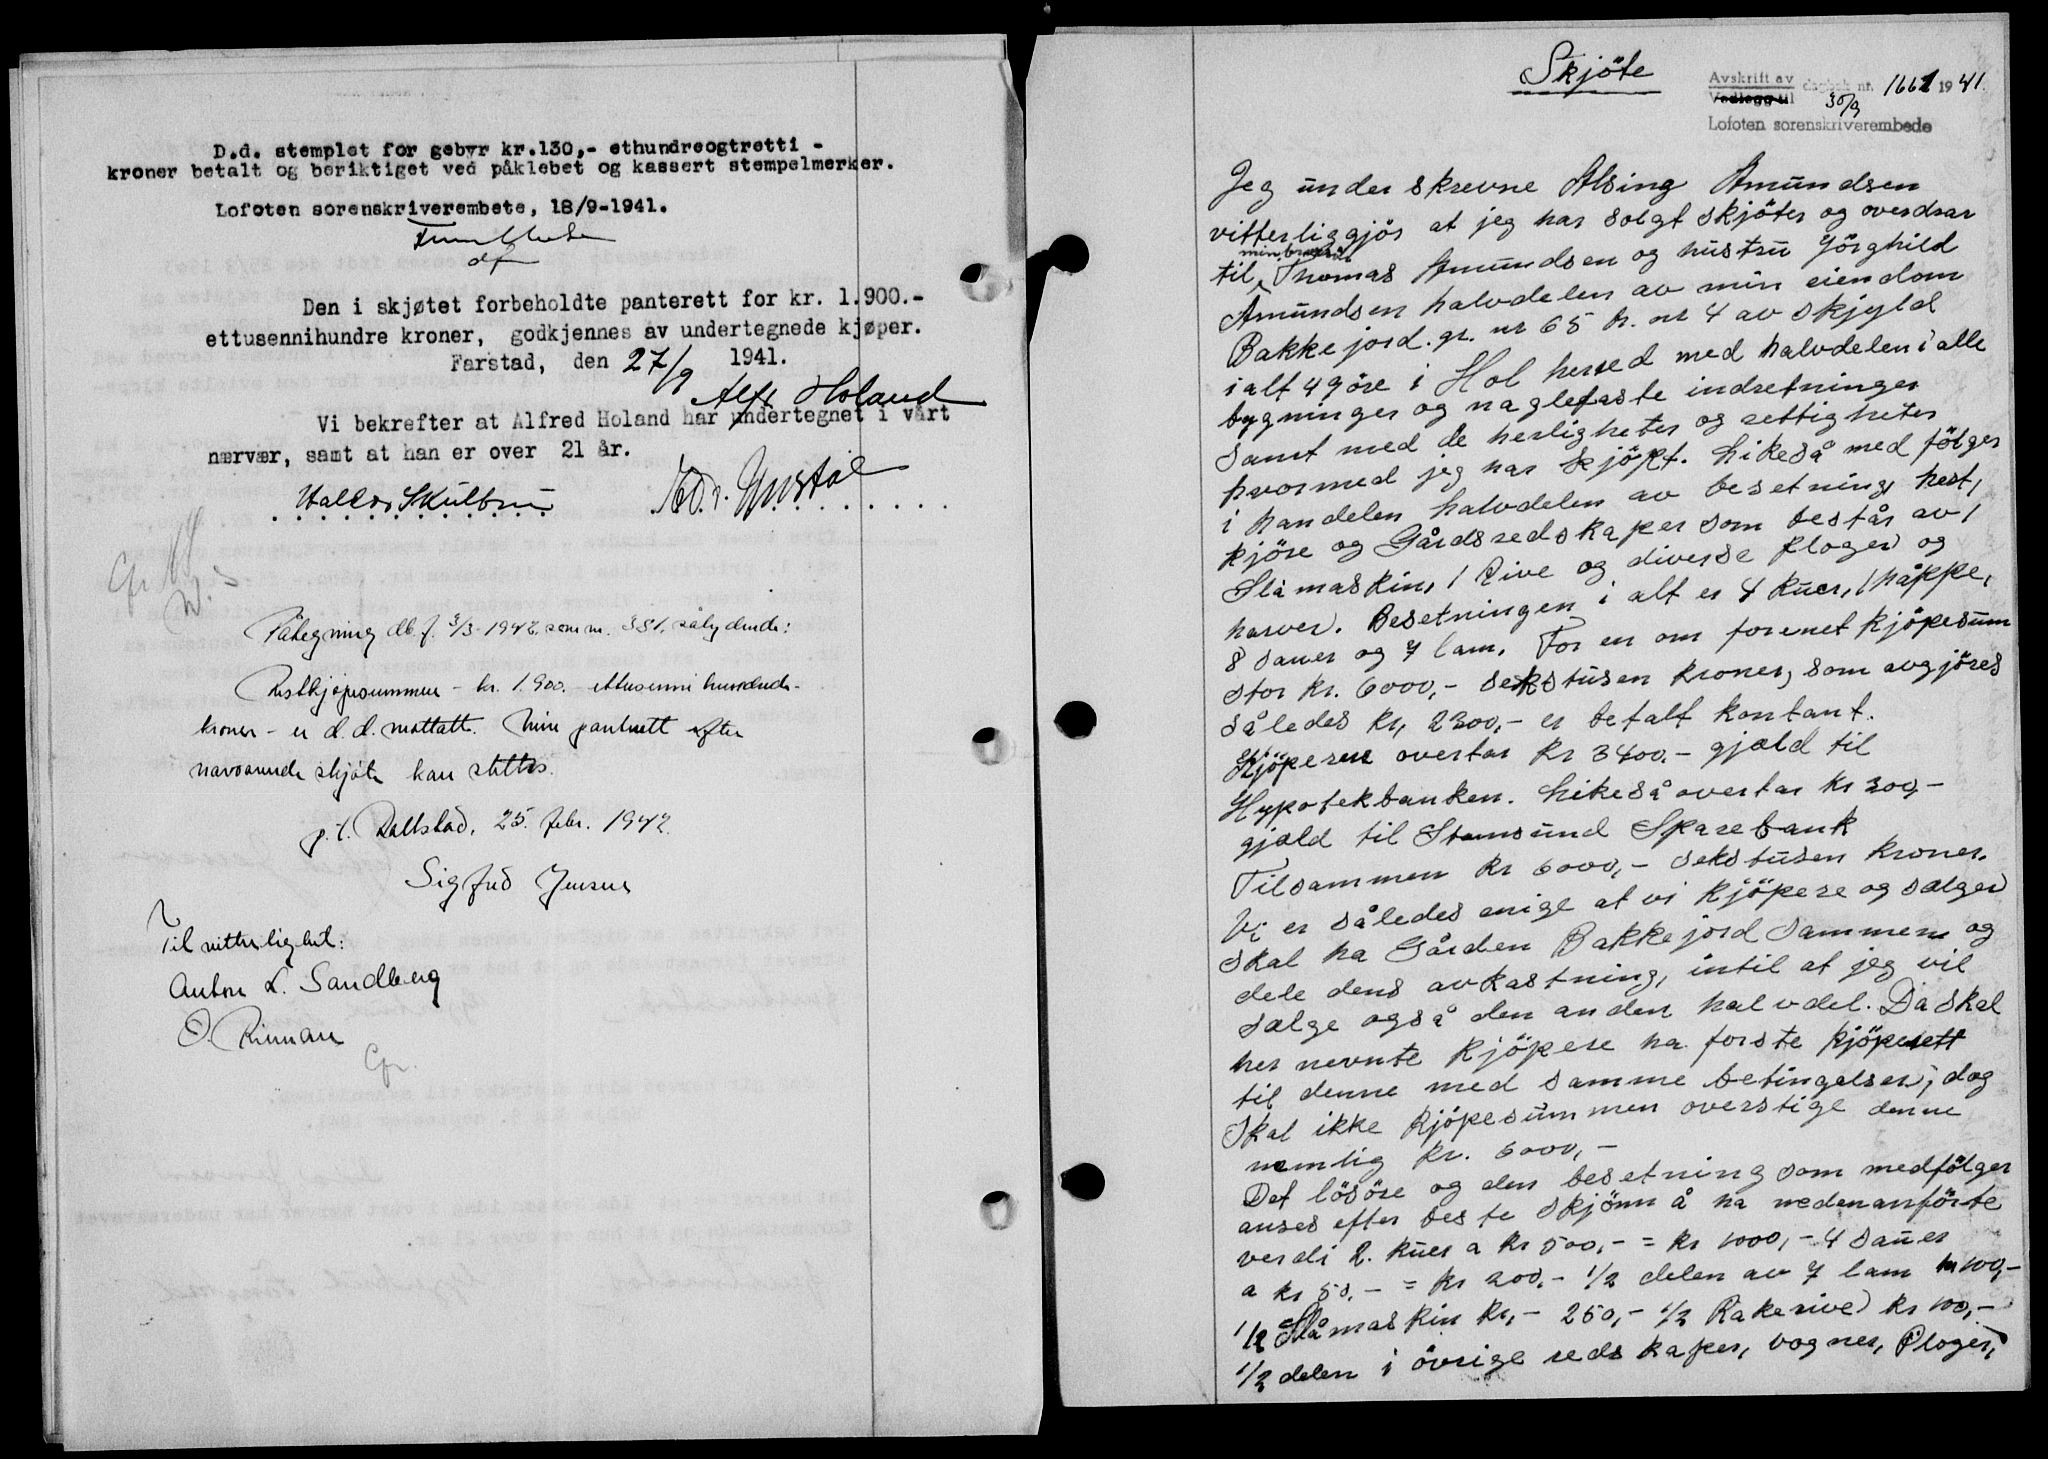 D.d. stemplet for gebyr kr.130,- ethundreogtretti -
kroner betalt og beriktiget ved påklebet og kassert stempelmerker.
Lofoten sorenskriverembete, 18/9-1941.
Den i skjøtet forbeholdte panterett for kr. 1.900.-
ettusennihundre kroner, godkjennes av undertegnede kjøper.
Farstad, den 27/9 1941.
Alfr Holand
Vi bekrefter at Alfred Holand har undertegnet i vårt
nærvær, samt at han er over 21 år.
Påtegning db.f. 3/3-1942, som nr. 381, sålydende:
Restkjøpesummen - kr. 1.900.- ettusenni hundrede-
kroner - er d.d. mottatt. Min pantrett efter
nærværende skjøte kan slettes.
p.t. Ballstad, 25. febr. 1942.
Sigfred Jensen
Til vitterlighet:
Anton L. Sandberg
Skjöte
Avskrift av
Vedlegg til dagbok nr. 1661 1941.
30/9
Lofoten sorenskriverembede
Jeg under skrevne Alsing Amundsen
vitterliggjör at jeg har solgt skjöter og overdrar
min bror
til Thomas Amundsen og hustru Görghild
Amundsen halvdelen av min eiendom
Bakkejord. gr. nr 65 br. nr 4 av skjyld
i alt 49 öre i Hol herred med halvdelen i alle
bygninger og naglefaste indretninger
samt med de herligheter og rettigheter
hvormed jeg har kjöpt. Likeså med fölger
i handelen halvdelen av besetning hest,
kjöre og Gårdsredskaper som består av 1
Slåmaskin, 1 Rive og diverse ploger og
harver. Besetningen i alt er 4 kuer, 1 påppe,
8 sauer og 7 lam. For en om forenet kjöpesum
stor kr. 6000,- sekstusen kroner, som avgjöres
således kr, 2300,- er betalt kontant.
Kjöperne overtar kr 3400.- gjæld til
Hypotekbanken. Likeså overtar kr 300,-
gjæld til Stamsund Sparebank
Tilsammen kr 6000,- sekstusen kroner.
Vi er således enige at vi kjöpere og sælger
skal ha Gården Bakkejord sammen og
dele dens avkastning, intil at jeg vil
sælge også den anden halvdel. Da skal
her nevnte kjöpere ha förste kjöpesrett
til denne med samme betingelser, dog
skal ikke kjöpesummen overstige denne
nemlig kr. 6000,-
Det lösöre og den besetning som medfölger
anses efter beste skjönn å ha nedenanförte
verdi 2. kuer a kr 500,- = kr 1000,- 4 sauer
a kr 50.- = kr 200,- 1/2 delen av 7 lam kr 100,-
1/2 Slåmaskin kr,- 250,- 1/2 Rakerive kr 100,-
1/2 delen i övrige redskaper, vogner, Ploger,